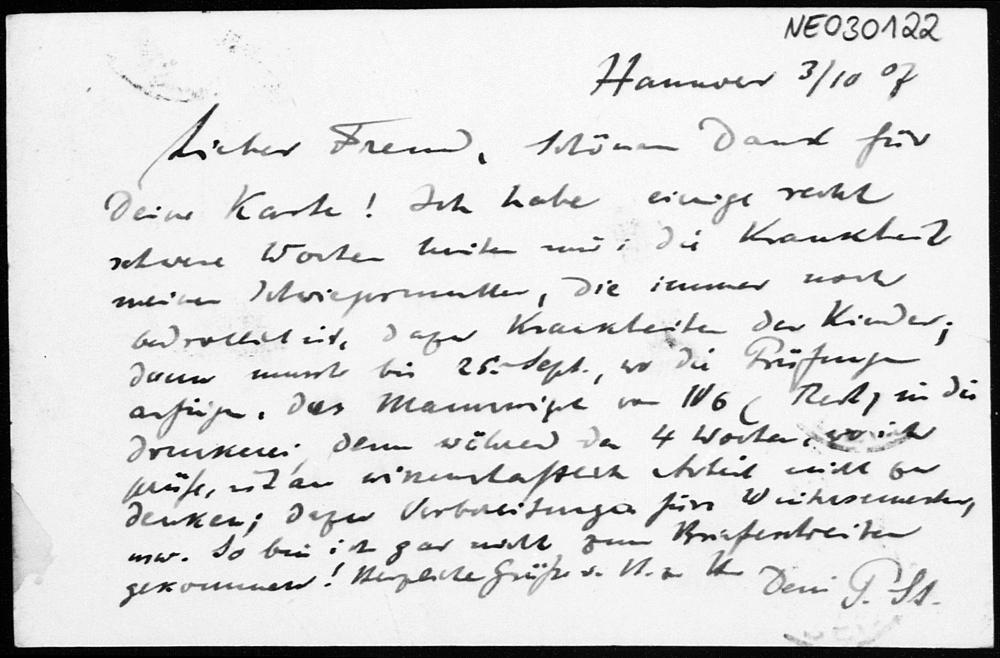 NE030122
Hannover 3/10 07
Lieber Freund, schönen Dank für
Deine Karte! Ich habe einige recht
schwere Wochen hinter mir: die Krankheit
meiner Schwiegermutter, die immer noch
bedrohlich ist, dazu Krankheiten der Kinder;
dann musste bis 25. Sept., wo die Prüfungen
anfingen, das Manuscript von IV6 (Rest) in die
Druckerei, denn während der 4 Wochen, wo ich
prüfe, ist an wissenschaftliche Arbeit nicht zu
denken; dazu Vorbereitungen fürs Wintersemester,
usw. So bin ich gar nicht zum Briefschreiben
gekommen! Herzliche Grüße v. H. z. H. Dein P. St.